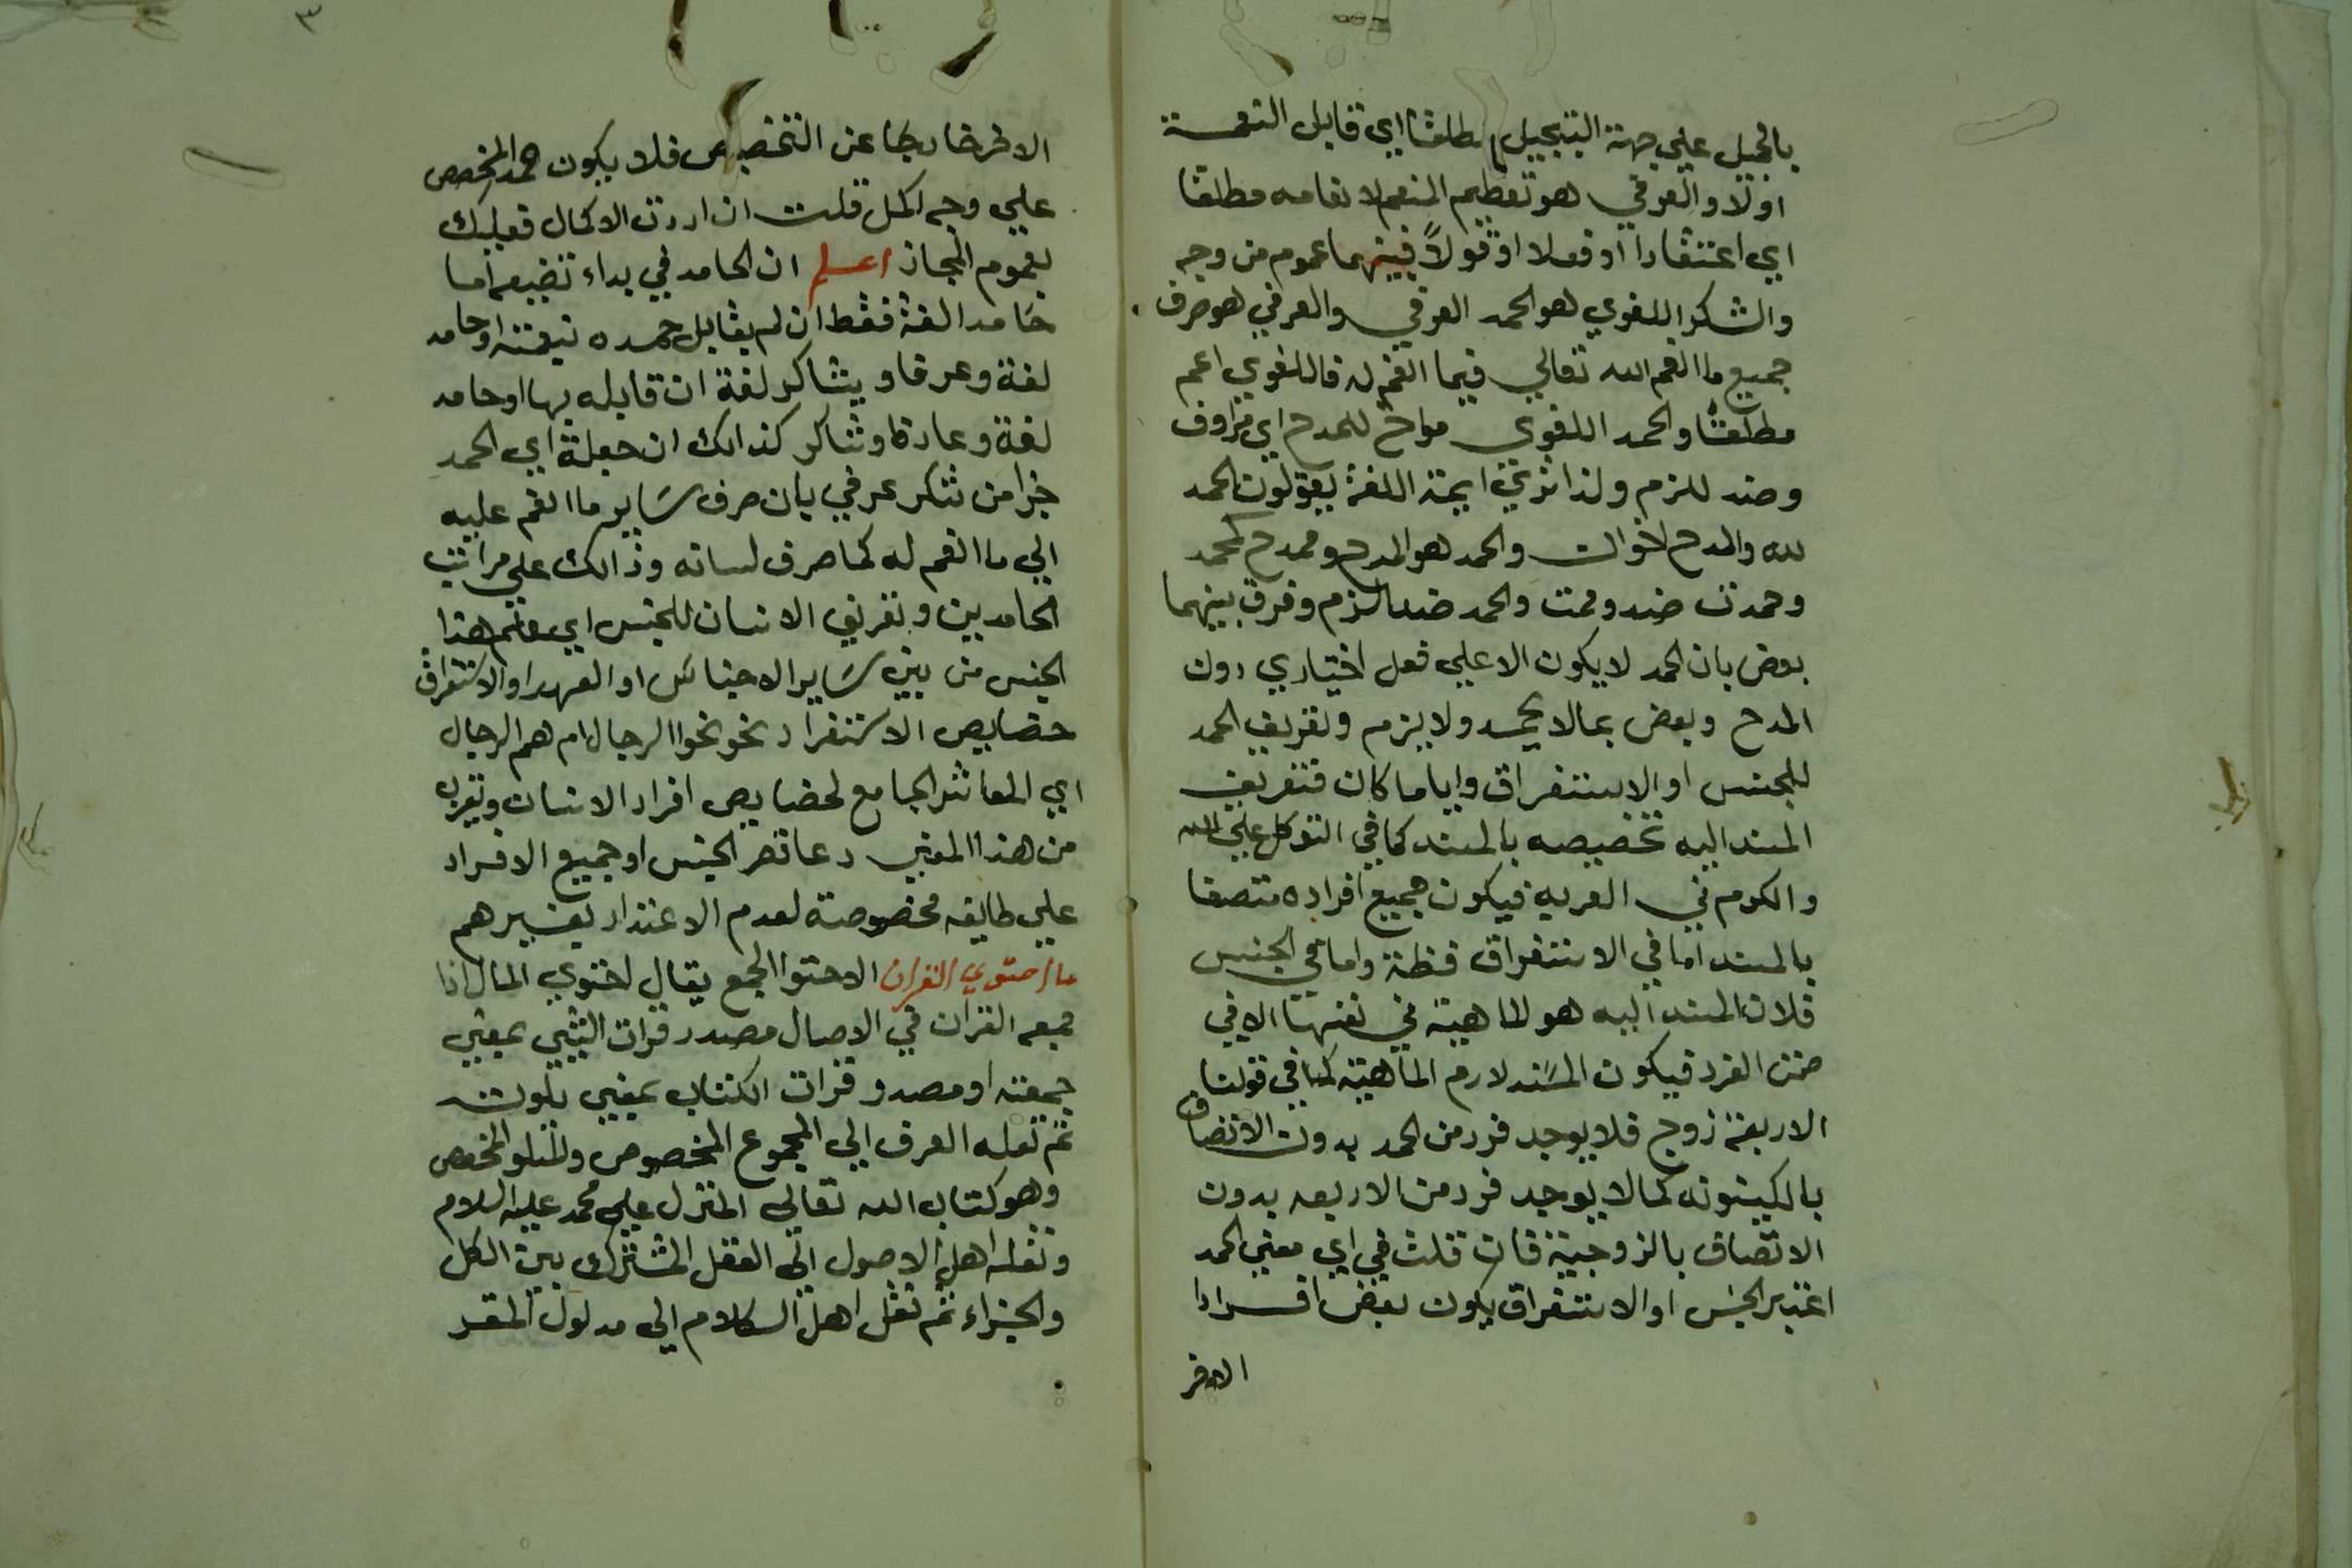 بالجميل علي جهة التبجيل مطلقا اي قابل النعمة
اولا والعرفي هو تعظيم المنعم لانعامه مطلقا
اي اعتقادا او فعلا او قولاً فبينهما عموم من وجه
والشكر اللغوي هو الحمد العرفي والعرفي هو صرف
جميع ما انعم الله تعالي فيما انعم له فاللغوي اعم
مطلقا والحمد اللغوي مواخ للمدح اي مرادف
وضد للزم ولذا تري ايمة اللغة يقولون الحمد
لله والمدح اخوان والحمد هو المدح ومدح كحمد
وحمدت ضد وممت والحمد ضد الزم وفرق بينهما
بعض بان الحمد لا يكون الا علي فعل اختياري دون
المدح وبعض بمالا يحمد ولا يزم وتعريف الحمد
للجنس او الاستغراق واياما كان فتعريف
المسند اليه تخصيصه بالمسند كما في التوكل علي الله
والكرم في العربه فيكون جميع افراده متصفا
بالمسند اما في الاستغراق فظنة واما في الجنس
فلان المسند اليه هو الماهية في نفسها الا في
ضمن الفرد فيكون المسَند لازم الماهية كما في قولنا
الاربعة زوج فلا يوجد فرد من الحمد بدون الاتصاف
بالكينونه كما لا يوجد فرد من الاربعه بدون
الاتصاف بالزوجية فان قلت في اي معني الحمد
اعتبر الجنس او الاستغراق يكون بعض افرادا
الاخر
٣
الاخر خارجا عن التخصيص فلا يكون حمد المخصص
علي وجه اكمل قلت ان اردت الاكمال فعليك
بعموم المجاز اعلم ان الحامد في بداء تضيعه اما
حَامد الغة فقط ان لم يقابل حمده نيعمته او حامد
لغة وعرفا و يشاكر لغة ان قابله بها او حامد
لغة وعادة وشاكر كذالك ان جعله اي الحمد
جزا من شكر عرفي بان صرف سَاير ما انعم عليه
الي ما انعم له كما صرف لسانه وذالك علي مراتب
الحامدين وتعريف الانسان للجنس اي معلم هذا
الجنس من بين سَاير الاجناس او العهد او الاستغراق
خصايص الاستغراد نحو نحوا الرجال ام هم الرجال
اي المعاشر الجامع لخصايص افراد الانسان وتقرب
من هذا المعني دعا قصر الجنس او جميع الافراد
علي طايفه مخصوصة لعدم الاعتذار بغيرهم
ما احتوي القران الاحتوا الجمع يقال احتوي المال اذا
جمعه القران في الاصال مصدر قرات الشي بمعني
جمعته او مصدر قرات الكتاب بمعني تلوت
ثم نعله العرف الي المجموع المخصوص والمتلو المخصص
وهو كتاب الله تعالي المنزل علي محمد عليه السلام
ونعله اهل الاصول الي العقل المشترك بين الكل
والجزاء ثم نقل اهل السكلام الي مدلول المقر